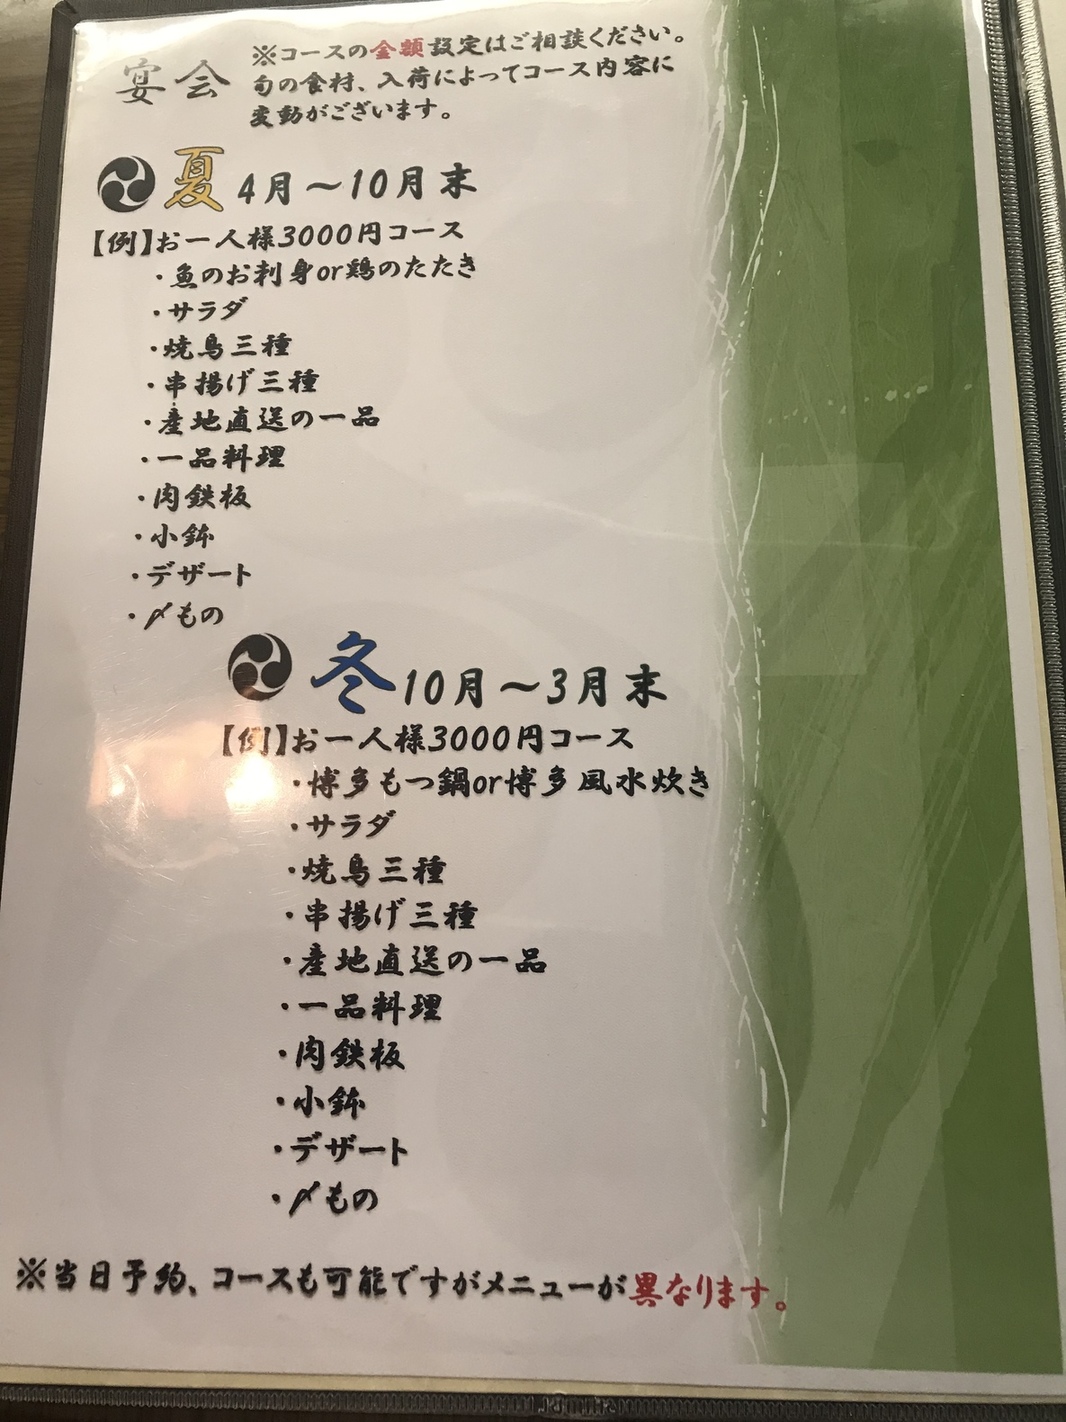 宴会
※コースの金額設定はご相談ください。
旬の食材、入荷によってコース内容に
変動がございます。
夏 4月～10月末
【例】お一人様3000円コース
・魚のお刺身or鶏のたたき
・サラダ
・焼鳥三種
・串揚げ三種
・産地直送の一品
・一品料理
・肉鉄板
・小鉢
・デザート
・〆もの
冬 10月～3月末
【例】お一人様3000円コース
・博多もつ鍋or博多風水炊き
・サラダ
・焼鳥三種
・串揚げ三種
・産地直送の一品
・一品料理
・肉鉄板
・小鉢
・デザート
・〆もの
※当日予約、コースも可能ですがメニューが異なります。